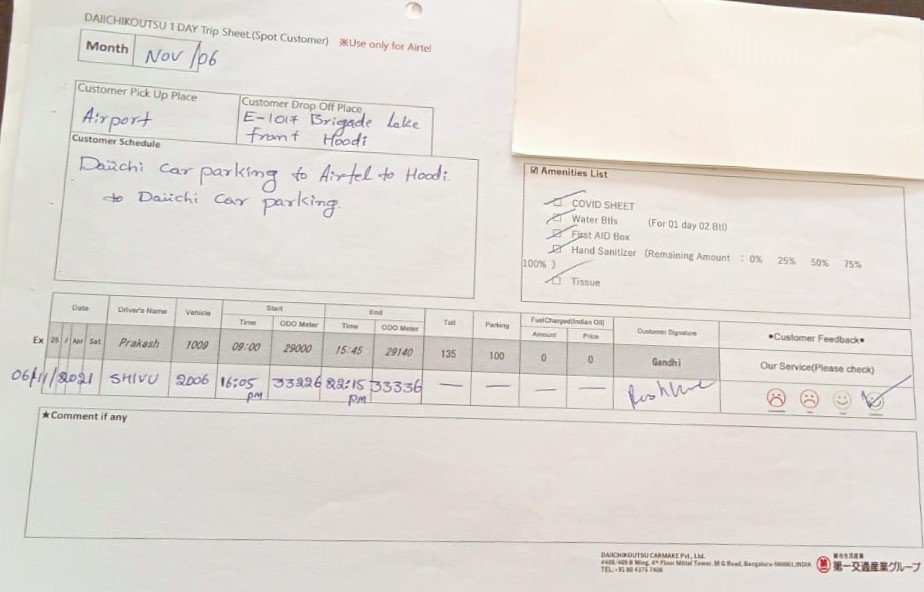 DAIICHIKOUTSU 1 DAY Trip Sheet.(Spot Customer) ※Use only for Airtel
Month Nov/06
Customer Pick Up Place
Airport
Customer Drop Off Place
E-1017 Brigade Lake
front Hoodi
Customer Schedule
Daiichi car parking to Airtel to Hoodi.
to Daiichi car parking.
☑ Amenities List
COVID SHEET
Water Btls (For 01 day 02 Btl)
First AID Box
Hand Sanitizer (Remaining Amount : 0% 25% 50% 75%
100% )
Tissue
Date Driver's Name Vehicle Start End Toll Parking FuelCharged(Indian Oil) Customer Signature •Customer Feedback•
Time ODO Meter Time ODO Meter Amount Price
Ex 25 / Apr Sat Prakash 1009 09:00 29000 15:45 29140 135 100 0 0 Gandhi Our Service(Please check)
06/11/2021 SHIVU 2006 16:05 PM 33226 22:15 PM 33336 — — — —
★Comment if any
DAIICHIKOUTSU CARMAKE Pvt., Ltd.
#408/409 B Wing, 4th Floor Mittal Tower, M G Road, Bengaluru-560001,INDIA
TEL:+91 80 4375 7408
総合生活産業
第一交通産業グループ